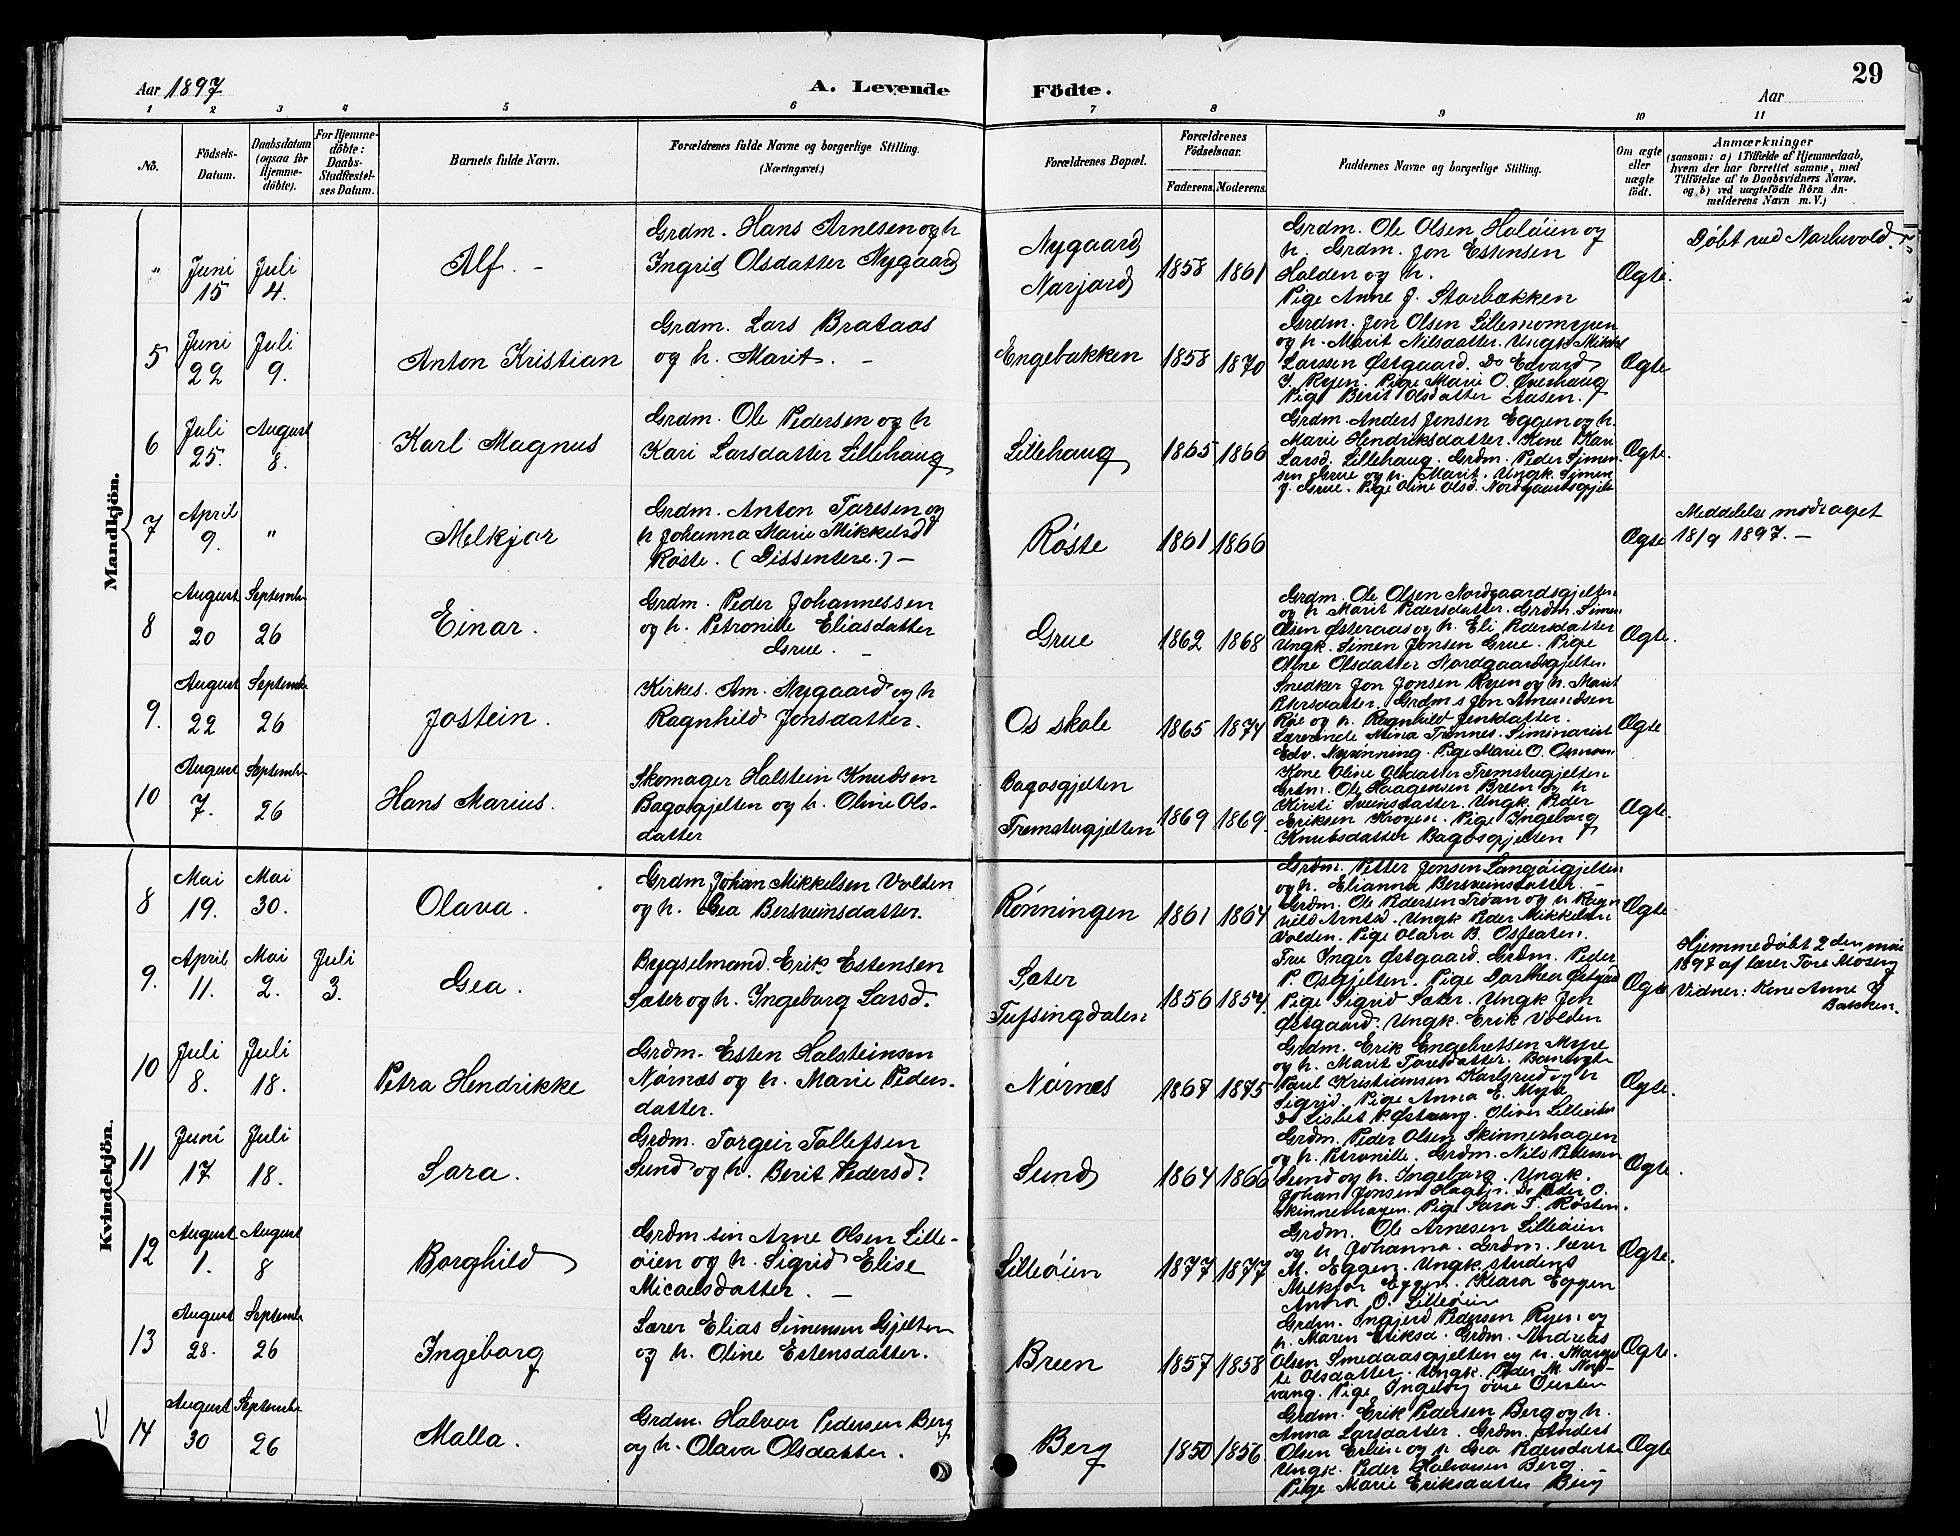 Aar 1897
A. Levende
Födte.
29
Aar
1 2 3 4 5 6 7 8 9 10 11
No.
Födsels-
Datum.
Daabsdatum
(ogsaa for
Hjemme-
döbte).
For Hjemme-
döbte:
Daabs-
Stadfæstel-
ses Datum.
Barnets fulde Navn.
Forældrenes fulde Navne og borgerlige Stilling.
(Næringsvei.)
Forældrenes Bopæl.
Forældrenes
Födselsaar.
Faderens. Moderens.
Faddernes Navne og borgerlige Stilling.
Om ægte
eller
uægte
födt.
Anmærkninger
(saasom: a) i Tilfælde af Hjemmedaab,
hvem der har forrettet samme, med
Tilföielse af to Daabsvidners Navne.
og b) ved uægtefödte Börn An-
melderens Navn m. V.)
Mandkjön.
"
Juni
15
Juli
4.
Alf. -
Grdm. Hans Arnesen og h
Ingrid Olsdatter Nygaard
Nygaard
Narjord
1858 1861
Grdm. Ole Olsen Holøien og
h. Grdm. Jon Estensen
Holden og h.
Pige Anne J. Storbækken
Ægte.
Døbt ved Narbuvold.
5
Juni
22
Juli
9.
Anton Kristian
Grdm. Lars Brataas
og h. Marit. -
Engebakken
1858 1870
Grdm. Jon Olsen Lillemomyren
og h. Marit Nilsdatter. Ungk. Mikkel
Larssen Østgaard. Do Edvard
J. Ryen. Pige Marie O. Øverhaug
Pige Berit Olsdatter Aasen.
Ægte
6
Juli
25.
August
8.
Karl Magnus
Grdm. Ole Pedersen og h
Kari Larsdatter Lillehaug
Lillehaug
1865 1866
Grdm. Anders Jonsen Eggen og h.
Marie Hendriksdatter. Kone Kari
Larsd. Lillehaug. Grdm. Peder Simen-
sen Grue og h. Marit. Ungk. Simen
J. Grue. Pige Oline Olsd. Nordgaardsgjelte
Ægte.
7
April
9.
"
Melkjor
Grdm. Anton Taresen og
h Johanna Marie Mikkelsd
Røste. (Dissentere.) -
Røste
1861 1866
Ægte
Meddelelse modtaget
18/9 1897. -
8
August
20
Septemb.
26
Einar.
Grdm. Peder Johannessen
og h. Petronille Eliasdatter
Grue. -
Grue
1862 1868
Grdm. Ole Olsen Nordgaardsgjelten
og h Marit Pedersdatter. Grdm. Simen
Olsen Østeraas og h. Eli Pedersdatter
Ungk. Simen Jonsen Grue. Pige
Oline Olsdatter Nordgaardsgjelten.
Ægte.
9.
August
22
Septemb.
26
Jostein.
Kirkes. Am. Nygaard og h
Ragnhild Jonsdatter.
Os skole
1865 1874
Snedker Jon Jonsen Ryen og h. Marit
Petersdatter. Grdm.s Jon Amundsen
Røe og h. Ragnhild Jonsdatter.
Lærerinde Mina Trønnes. Siminarist
Edv. Nyrønning. Pige Marie O. Osmoen
Ægte.
10
August
7.
Septemb.
26
Hans Marius.
Skomager Halstein Knudsen
Bagaasgjelten og h. Oline Ols-
datter
Bagosgjelten
Fremstugjelten
1869 1869.
Kone Oline Olsdatter Fremstugjelten
Grdm. Ole Haagensen Breen og h
Kirsti Sveinsdatter. Ungk. Peder
Eriksen Krogen. Pige Ingeborg
Knudsdatter Bagosgjelten
Ægte.
Kvindekjön.
8
Mai
19.
Mai
30.
Olava.
Grdm Johan Mikkelsen Volden
og h. Gea Bersveinsdatter.
Rønningen
1861 1864
Grdm. Petter Jonsen Langøigjelten
og h. Elianna Bersveinsdatter. -
Grdm. Ole Pedersen Trøan og h Ragn
hild Arntsd. Ungk Peder Mikkelsen
Volden. Pige Olava B.
Ægte
9.
April
11.
Mai
2.
Juli
3.
Gea.
Bygselmand. Erik Estensen
Sæter og h. Ingeborg Larsd.
Sæter
Tufsingdalen
1856 1854.
Fru Inger Østgaard. Grdm. Peder
P. Osgjelten. Pige Dorthea Østgaard
Pige Sigrid Sæter. Ungk Jon
Østgaard. Ungk. Erik Volden
Ægte
Hjemmedøbt 2den mai
1897 af lærer Tore Moseng
Vidner: Kone Anne J
Bakken.
10
Juli
8.
Juli
18.
Petra Hendrikke
Grdm. Esten Halsteinsen
Nørnæs og h. Marie Peders-
datter.
Nørnæs
1867 1875
Grdm. Erik Engebretsen Myre
og h. Marit Toresdatter. Banevogt
Paul Kristiansen Karlsrud og h
Sigrid. Pige Anna E. Myre
Ægte.
11
Juni
17
Juli
18.
Sara.
Grdm. Torgeir Tollefsen
Sund og h. Berit Pedersd.
Sund
1864 1866
Grdm. Peder Olsen Skinnerhagen
og h. Petronille. Grdm. Nils Pedersen
Sund og h. Ingeborg. Ungk.
Johan Jonsen Hagen. Do Peder O.
Skinnerhagen. Pige Sara T. Røsten.
Ægte.
12
August
1.
August
8
Borghild
Grdm. søn Arne Olsen Lille-
øien og h. Sigrid Elise
Micaelsdatter. -
Lilleøien
1877 1877
Grdm. Ole Arnesen Lilleøien
og h. Johanna. Grdm. lærer
M. Eggen. Ungk. student
Melkjor Eggen. Klara Eggen
Anna O. Lilleøien
Ægte.
13
August
28.
Septemb.
26
Ingeborg
Lærer Elias Simensen Gjelten
og h. Oline Estensdatter.
Breen
1857 1858
Grdm. Ingjerd Pedersen Ryen og
h. Maren Eriksd. Grdm. Andreas
Olsen Smedaasgjelten og h. Margre
te Olsdatter. Ungk. Peder M. Nord-
vang. Pige Ingeborg
Ægte.
14
August
30
Septemb.
26
Malla.
Grdm. Halvor Pedersen Berg
og h. Olava Olsdatter.
Berg
1850 1856
Grdm. Erik Pedersen Berg og h.
Anna Larsdatter. Grdm. Anders
Olsen Erlien og h Gea Pedersdatter
Ungk. Peder Halvorsen Berg.
Pige Marie Eriksdatter Berg
Ægte